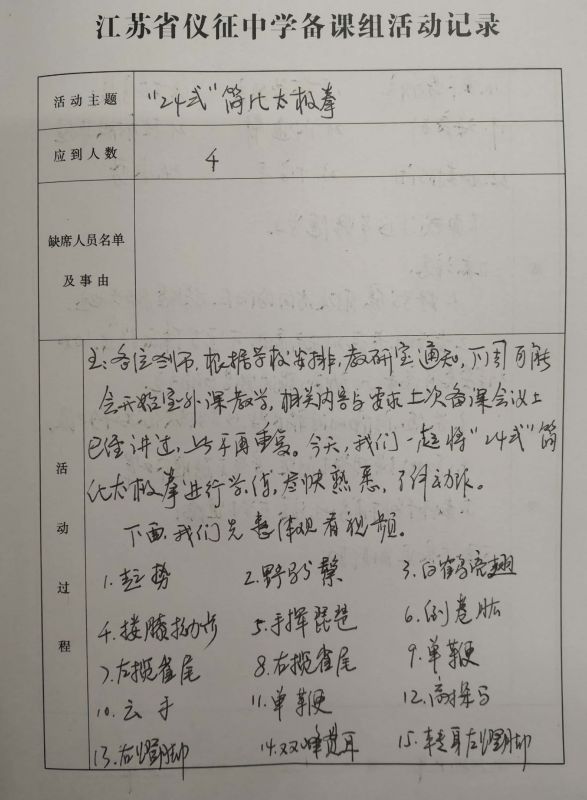 江苏省仪征中学备课组活动记录
活动主题
“24式”简化太极拳
应到人数
4
缺席人员名单
及事由
活动过程
主:各位老师,根据学校安排,教研室通知,下周可能
会开始室外课教学,相关内容与要求上次备课会议上
已经讲过,此不再重复。今天,我们一起将“24式”简
化太极拳进行学练,尽快熟悉,了解动作。
下面,我们先集体观看视频。
1.起势 2.野马分鬃 3.白鹤亮翅
4.搂膝拗步 5.手挥琵琶 6.倒卷肱
7.左揽雀尾 8.右揽雀尾 9.单鞭
10.云手 11.单鞭 12.高探马
13.右蹬脚 14.双峰贯耳 15.转身左蹬脚